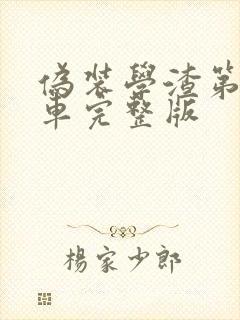 偽裝學渣第
車完整版
楊家少郎